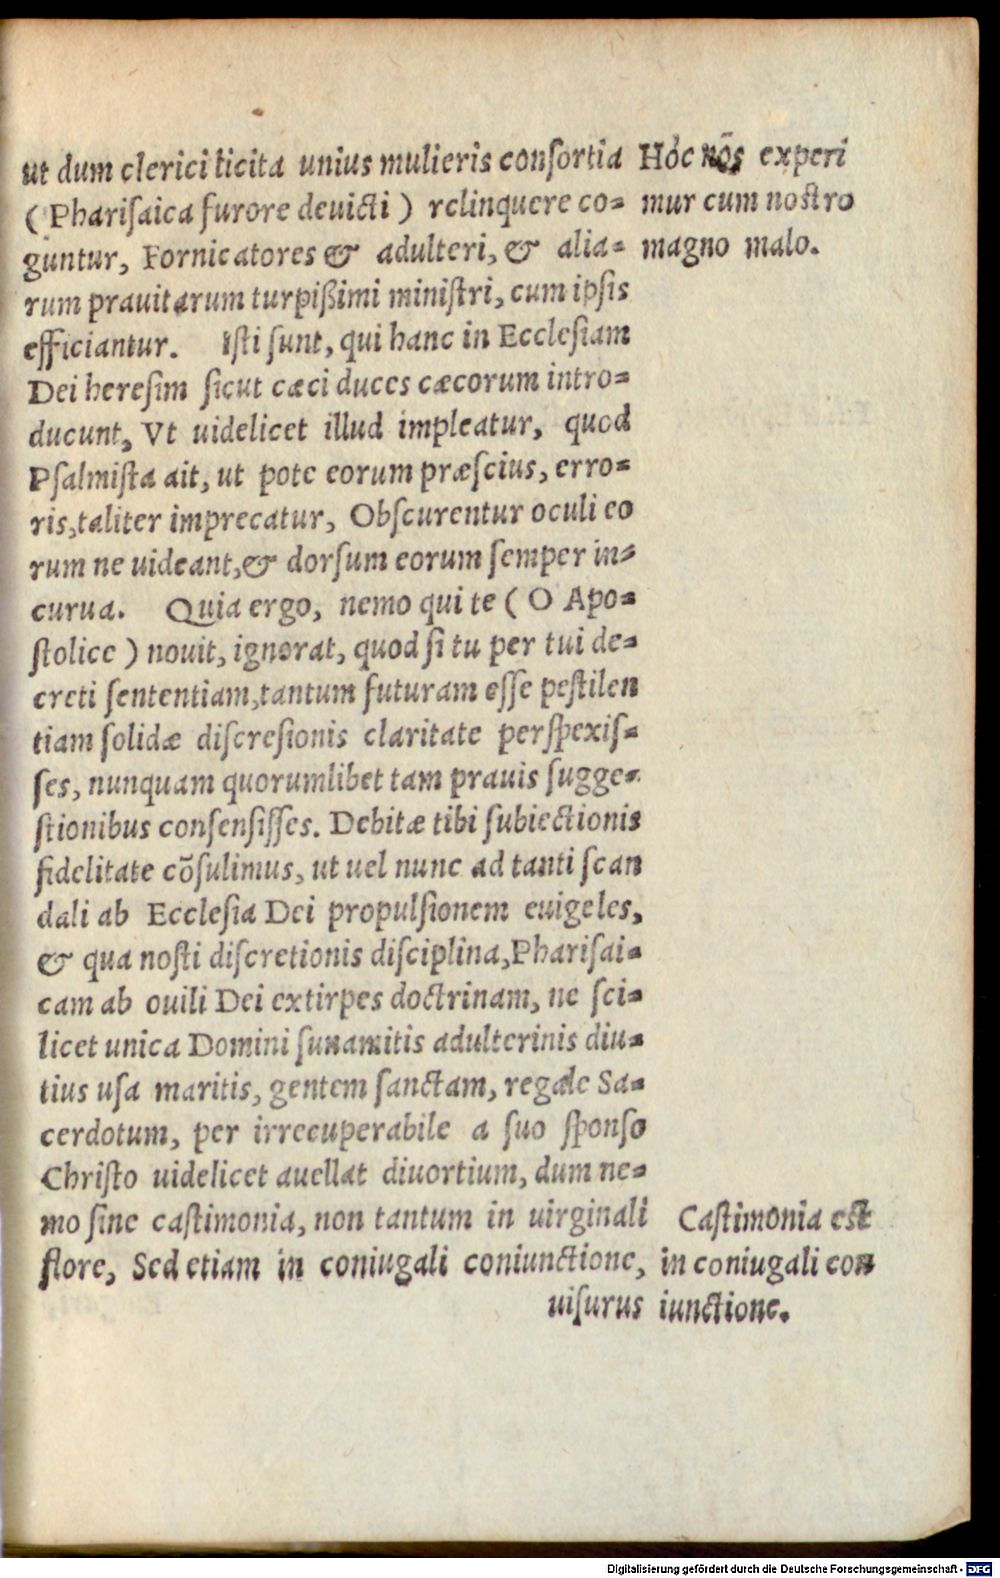 ut dum clerici licita unius mulieris conſortia
(Phariſaica furore deuicti) relinquere co=
guntur, Fornicatores & adulteri, & alia=
rum prauitarum turpißimi miniſtri, cum ipſis
efficiantur. Iſti ſunt, qui hanc in Eccleſiam
Dei hereſim ſicut cæci duces cæcorum intro=
ducunt, Vt uidelicet illud impleatur, quod
Pſalmiſta ait, ut pote eorum præſcius, erro=
ris,taliter imprecatur, Obſcurentur oculi eo
rum ne uideant,& dorſum eorum ſemper in=
curua. Quia ergo, nemo qui te (O Apo=
ſtolice) nouit, ignorat, quod ſi tu per tui de=
creti ſententiam,tantum futuram eſſe peſtilen
tiam ſolidæ diſcreſionis claritate perſpexiſ=
ſes, nunquam quorumlibet tam prauis ſugge=
ſtionibus conſenſiſſes. Debitæ tibi ſubiectionis
fidelitate cõſulimus, ut uel nunc ad tanti ſcan
dali ab Eccleſia Dei propulſionem euigeles,
& qua noſti diſcretionis diſciplina,Phariſai=
cam ab ouili Dei extirpes doctrinam, ne ſci=
licet unica Domini ſunamitis adulterinis diu=
tius uſa maritis, gentem ſanctam, regale Sa=
cerdotum, per irrecuperabile a ſuo ſponſo
Chriſto uidelicet auellat diuortium, dum ne=
mo ſine caſtimonia, non tantum in uirginali
flore, Sed etiam in coniugali coniunctione,
uiſurus
Hoc nõs experi
mur cum noſtro
magno malo.
Caſtimonia eſt
in coniugali con
iunctione.
Digitalisierung gefördert durch die Deutsche Forschungsgemeinschaft - DFG